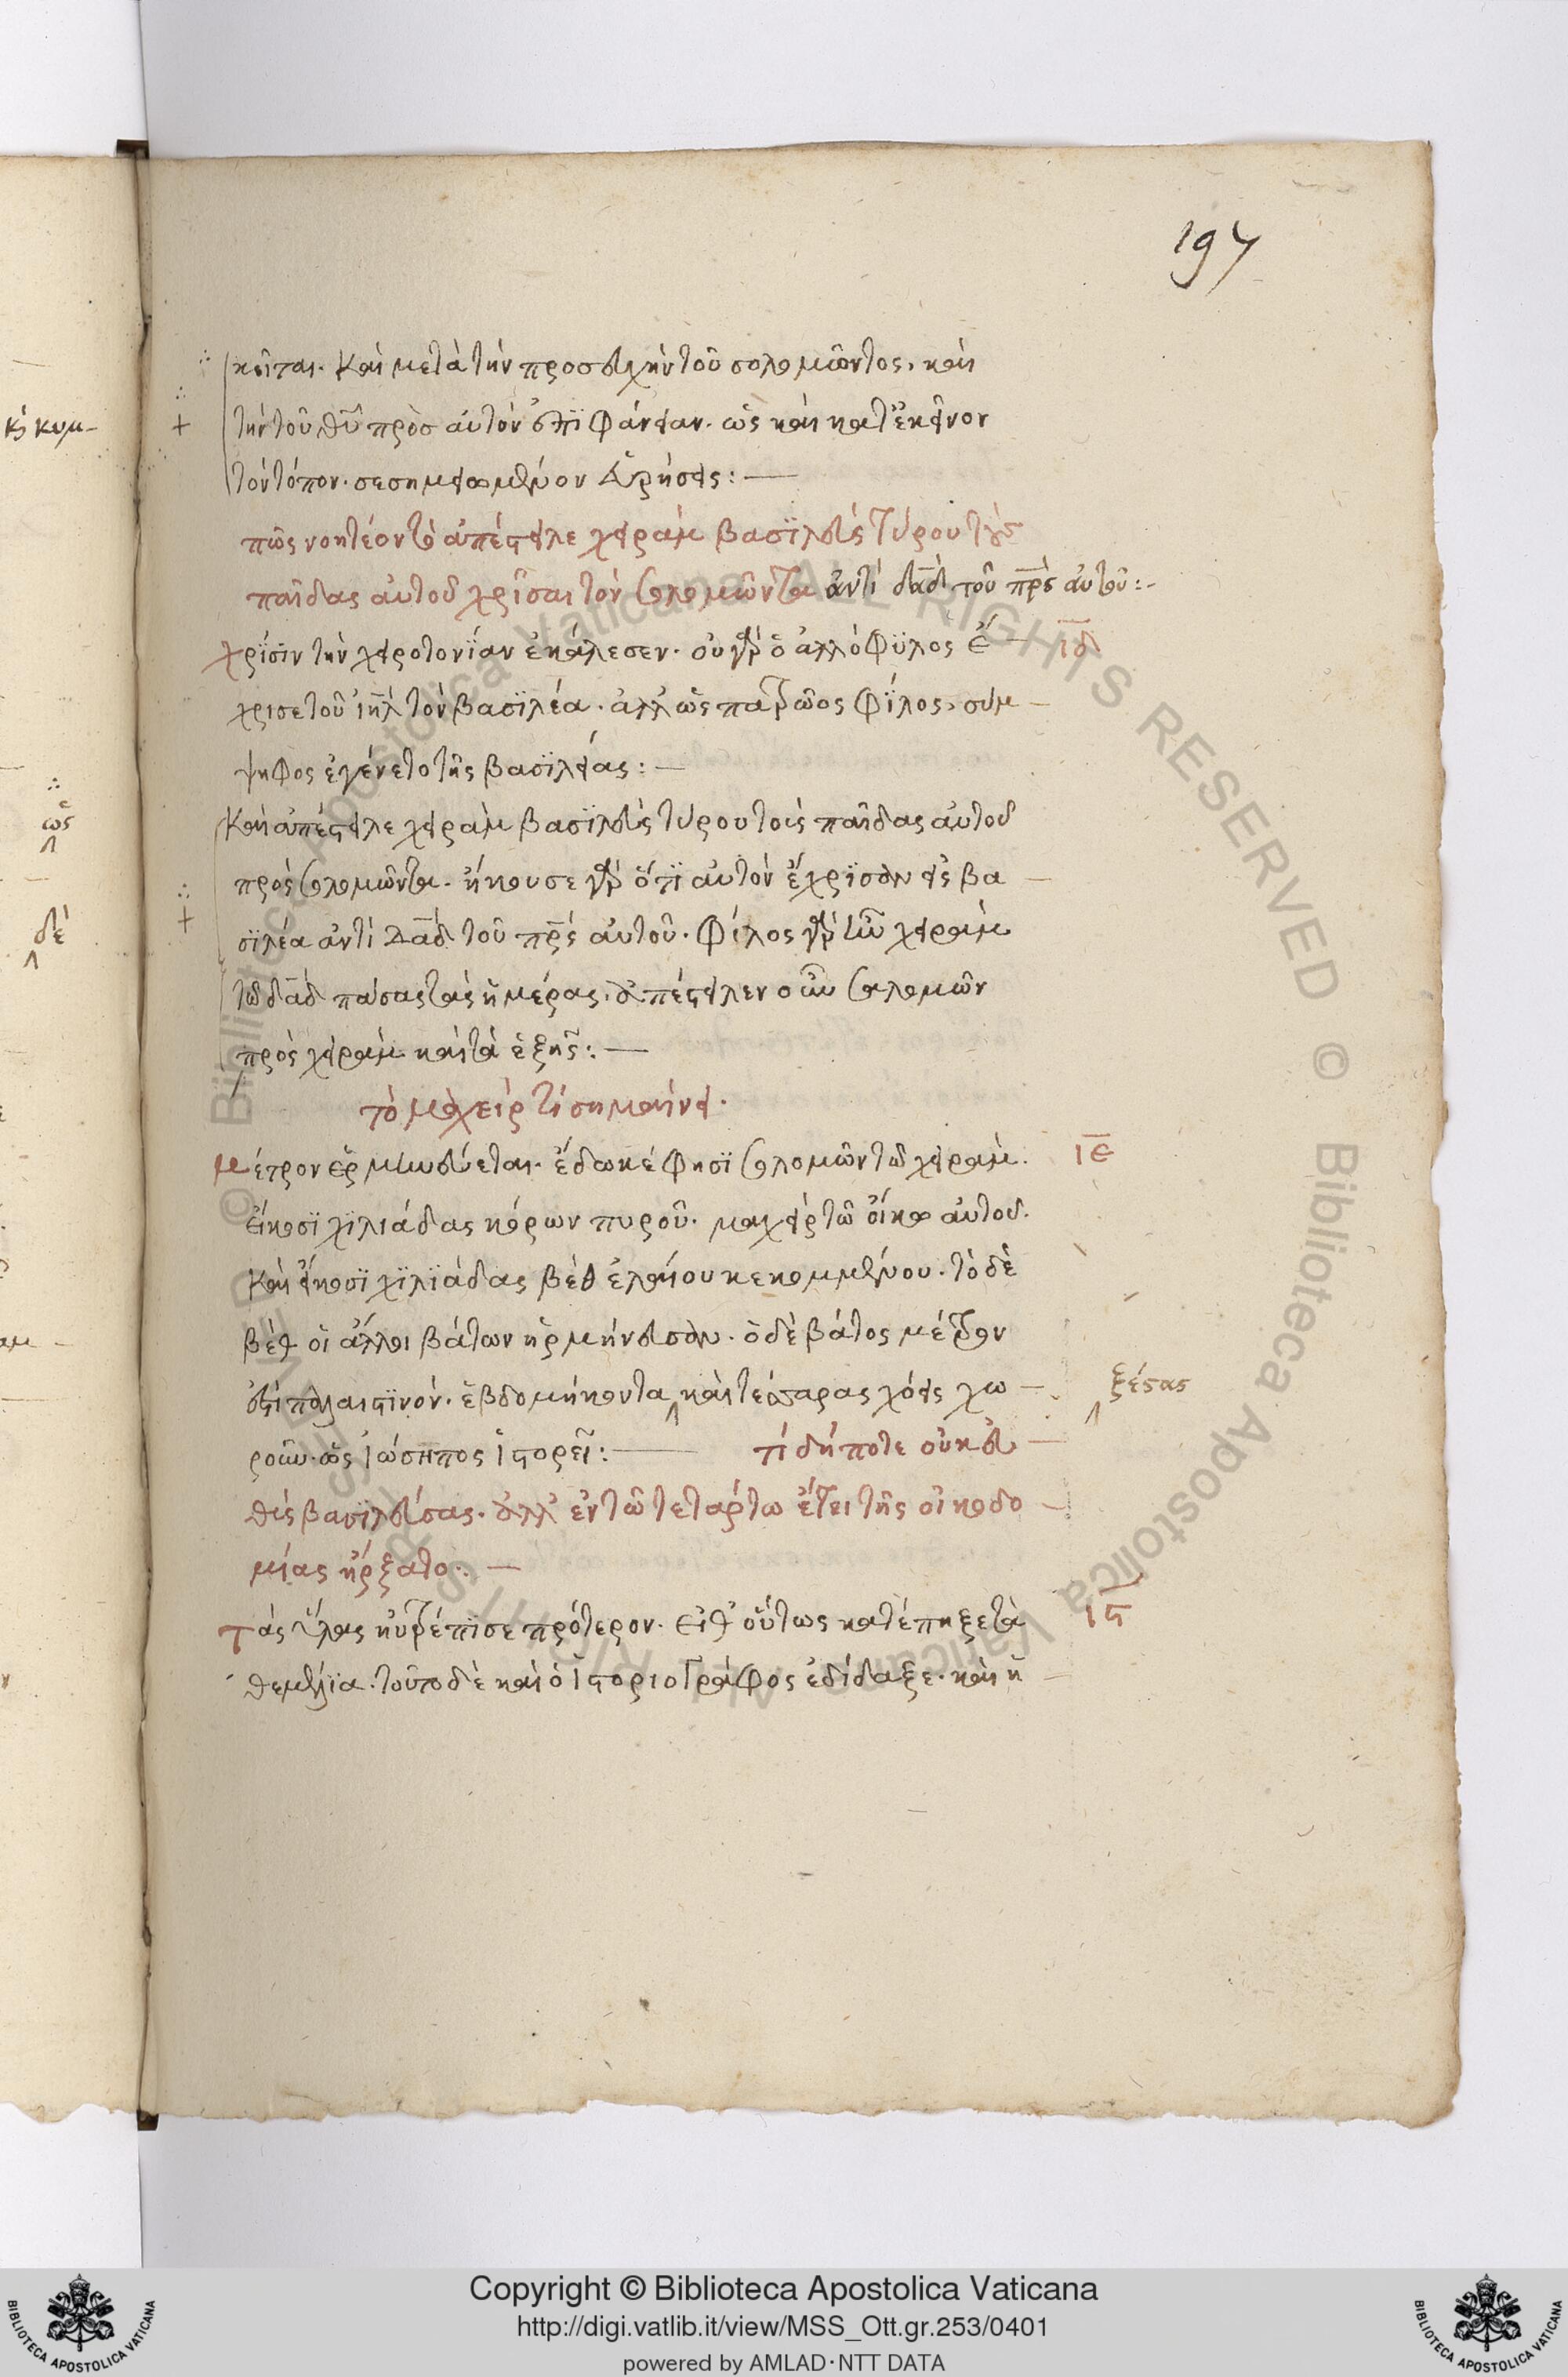 197
κεῖται. Καὶ μετὰ τὴν προσευχὴν τοῦ σολομῶντος, καὶ
τὴν τοῦ θυ πρὸσ αὐτὸν ἐπϊφάνειαν. ὡς καὶ κατ' ἐκεῖνον
τὸν τόπον. σεσημειωμένον εὑρήσεις :
πῶς νοητέον τὸ ἀπέστειλε χειρὰμ βασϊλεὺς τύρου τοὺς
παῖδας αὐτοῦ χρῖσαι τὸν σολομῶντα ἀντὶ δαδ τοῦ πρς αὐτοῦ :
χρίσϊν τὴν χειροτονΐαν ἐκάλεσεν. οὐ γὰρ ὁ ἀλλόφϋλος ἔ ιδ
χρισε τοῦ ιηλ τὸν βασϊλέα. ἀλλ' ὡς πατρῶος φΐλος, σύμ
ψηφος ἐγένετο τῆς βασϊλείας :
Καὶ ἀπέστειλε χειρὰμ βασϊλεὺς τύρου τοὺς παῖδας αὐτοῦ
πρὸς σολομῶντα. ἤκουσε γὰρ ὅτϊ αὐτὸν ἔχρϊσαν εἰς βα
σϊλέα ἀντὶ δαδ τοῦ πρς αὐτοῦ. φίλος γὰρ ἦν χειρὰμ
τῶ δαδ πάσας τὰς ἡμέρας. ἀπέστειλεν οὖν σολομῶν
πρὸς χειρὰμ καὶ τὰ ἑξῆς :
τὸ μαχεὶρ τί σημαίνει.
μέτρον ἑρμηνεύεται. ἔδωκέ φησϊ σολομῶν τῶ χειρὰμ. ιε
εἴκοσϊ χϊλιάδας κόρων πυροῦ. μαχεὶρ τῶ οἴκω αὐτοῦ.
Καὶ εἴκοσϊ χϊλϊάδας βὲθ ἐλαίου κεκομμένου. τὸ δὲ
βὲθ οἱ ἄλλοι βάτων ἡρμήνευσαν. ὁ δὲ βάτος μέτρον
ἐστὶ παλαιστϊνόν. ἑβδομήκοντα καὶ τέσσαρας χόεις χω ξέσας
ροῦν. ὡς ἰώσηπος ἱστορεῖ : τί δήποτε οὐκ εὐ
θὺς βασιλεύσας. ἀλλ' ἐν τῶ τετάρτω ἔτει τῆς οἰκοδο
μίας ἤρξατο.
τὰς ὕλας ηὐτρέπϊσε πρότερον. εἶθ' οὕτως κατέπηξε τὰ ις
θεμέλϊα. τοῦτο δὲ καὶ ὁ ἱστοριογράφος ἐδίδαξε. καὶ ἡ
κὴ κυμ
ὡς
δὲ
Copyright © Biblioteca Apostolica Vaticana
http://digi.vatlib.it/view/MSS_Ott.gr.253/0401
powered by AMLAD·NTT DATA